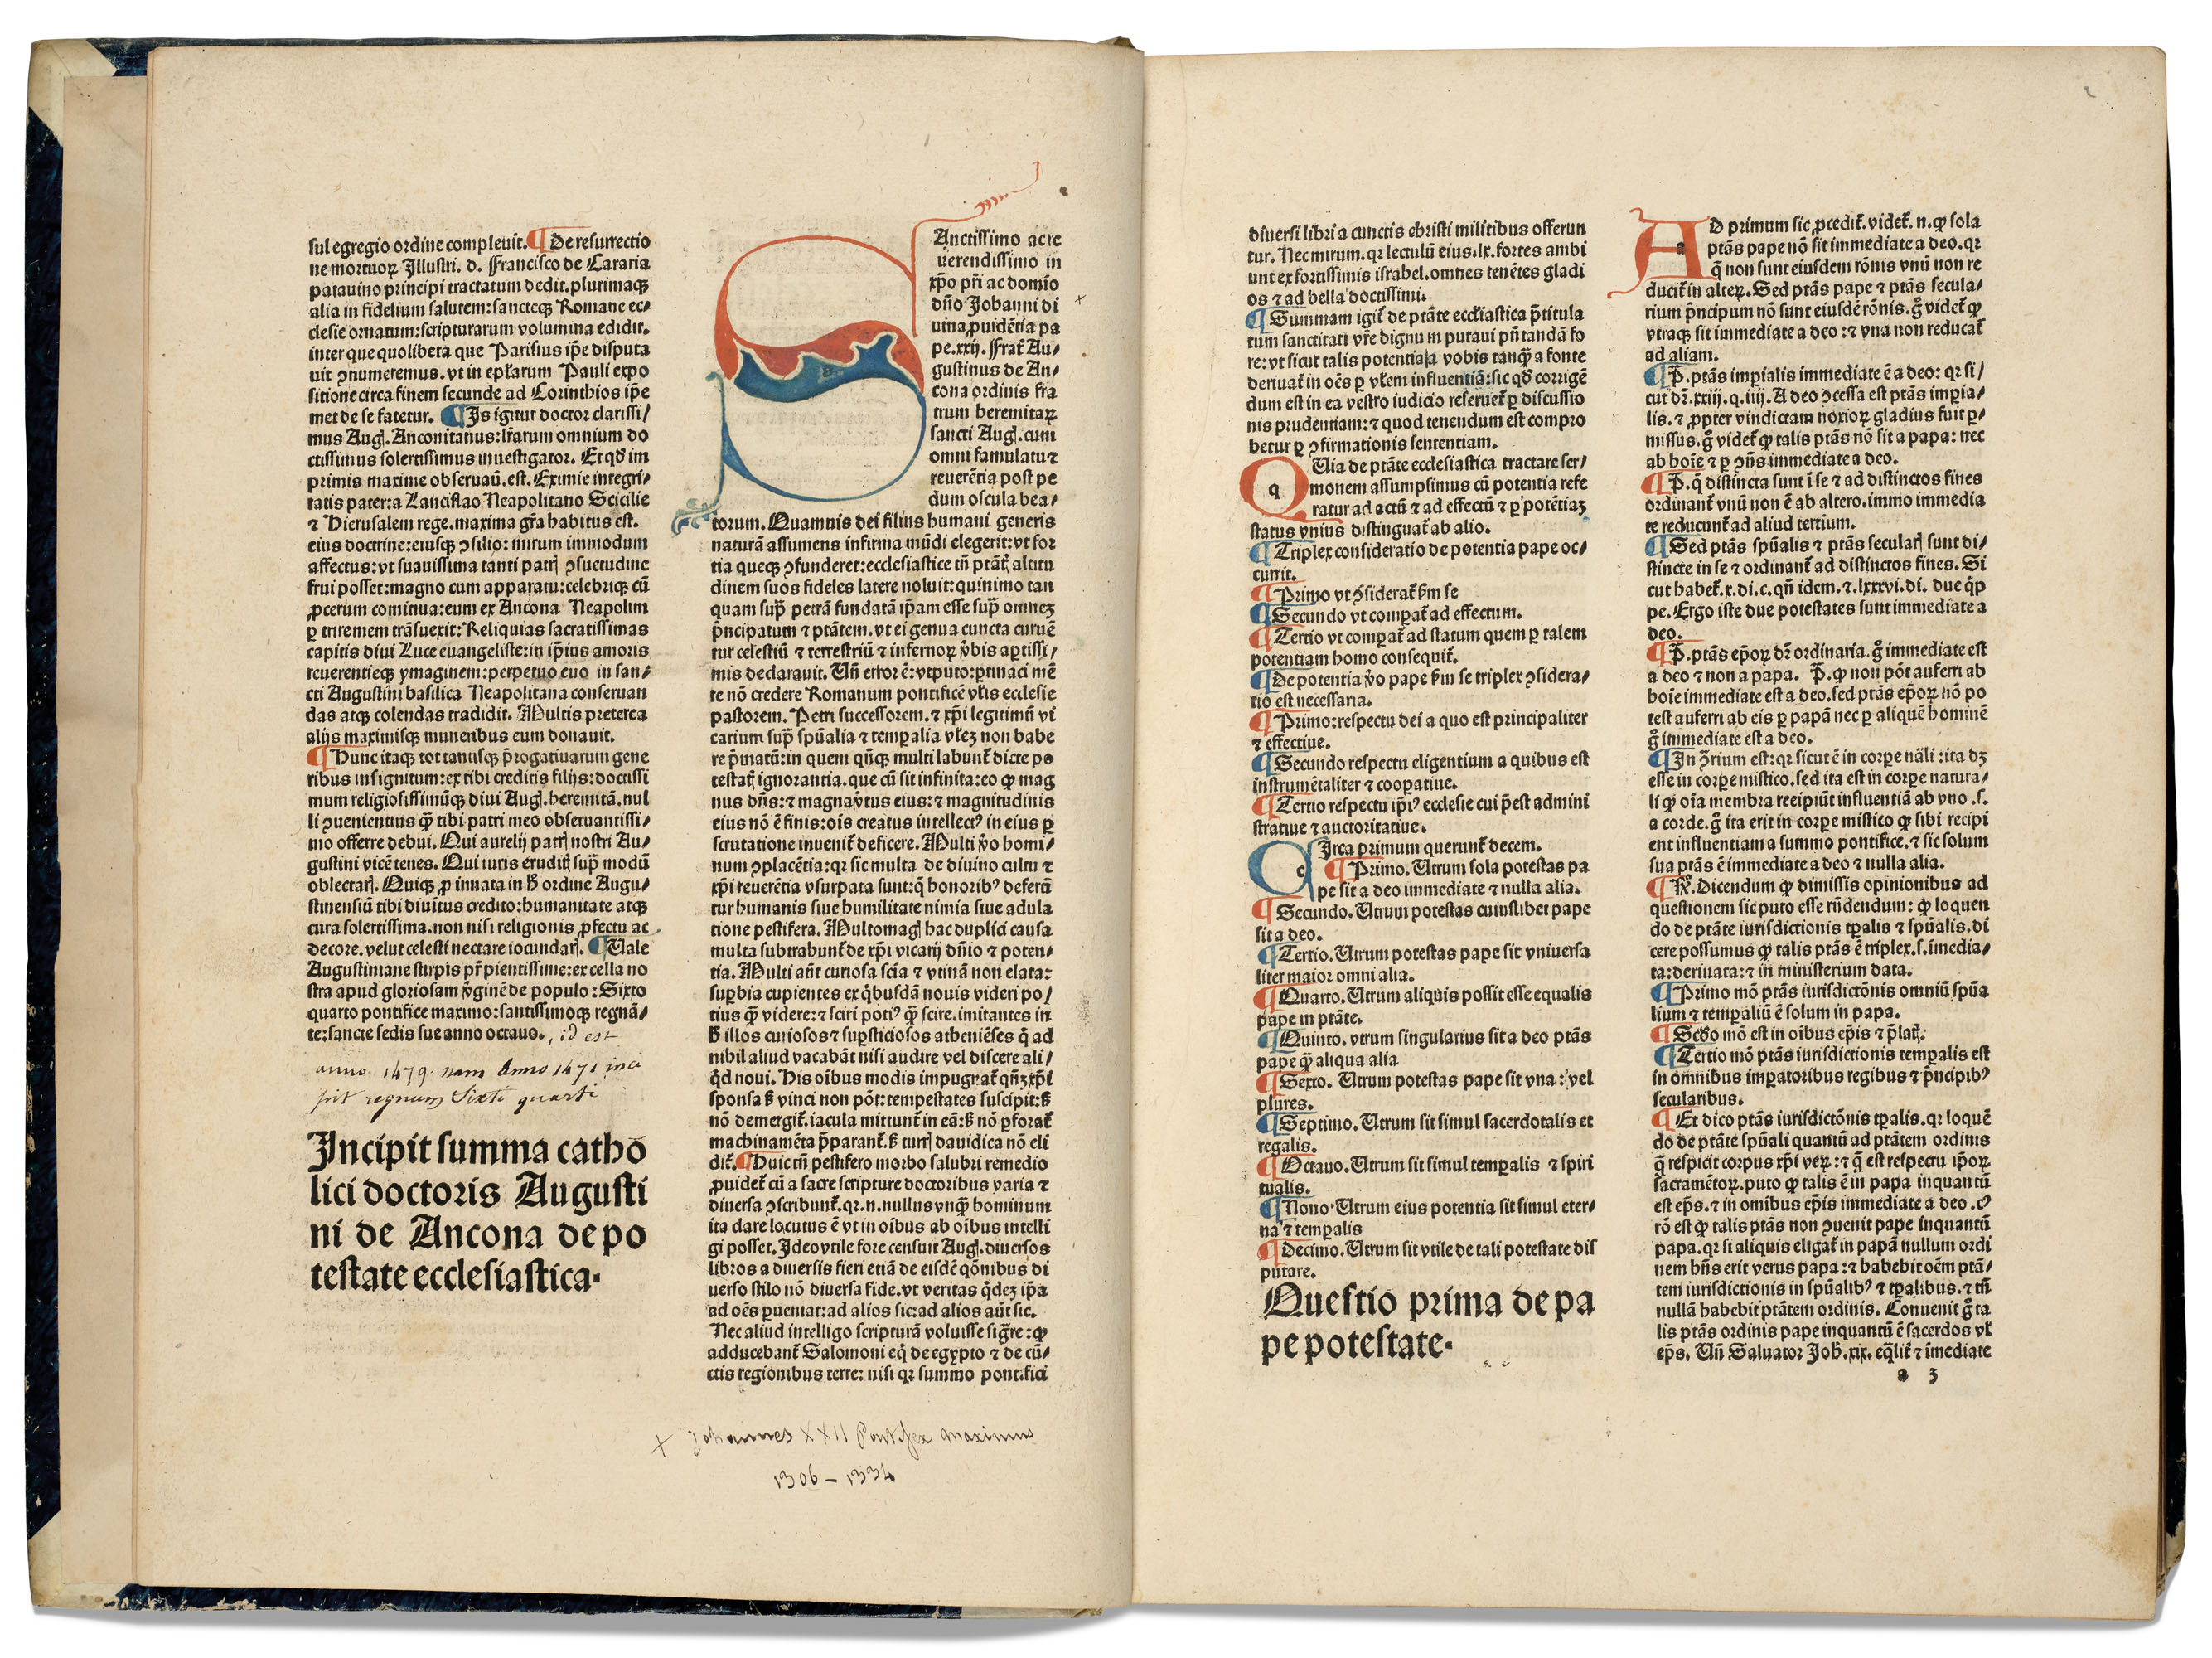 sul egregio ordine compleuit. ¶ De resurrectio
ne mortuoꝝ Illustri. d. Francisco de Cararia
patauino principi tractatum dedit. plurimaqꝫ
alia in fidelium salutem: sancteqꝫ Romane ec⸗
clesie ornatum: scripturarum volumina edidit.
inter que quolibeta que Parisius ip̄e disputa
uit ꝯnumeremus. vt in epl'arum Pauli expo
sitione circa finem secunde ad Corinthios ip̄e
met de se fatetur. ¶ Is igitur doctor clarissi⸗
mus Augꝭ. Anconitanus: lr̄arum omnium do
ctissimus solertissimus inuestigator. Et qđ im
primis maxime obseruau̅. est. Eximie integri⸗
tatis pater: a Lancislao Neapolitano Scicilie
⁊ Hierusalem rege. maxima gr̄a habitus est.
eius doctrine: eiusqꝫ ꝯsilio: mirum immodum
affectus: vt suauissima tanti patrꝭ ꝯsuetudine
frui posset: magno cum apparatu: celebriqꝫ cū
ꝓcerum comitiua: eum ex Ancona Neapolim
ꝑ triremem trāsuexit: Reliquias sacratissimas
capitis diui Luce euangeliste: in ip̄ius amoris
reuerentieqꝫ ymaginem: perpetuo euo in san⸗
cti Augustini basilica Neapolitana conseruan
das atqꝫ colendas tradidit. Multis preterea
alijs maximisqꝫ muneribus eum donauit.
¶ Hunc itaqꝫ tot tantisqꝫ p̄rogatiuarum gene
ribus insignitum: ex tibi creditis filijs: doctissi
mum religiosissimūqꝫ diui Augꝭ. heremitā. nul
li ꝯuenientius qꝫ̄ tibi patri meo obseruantissi⸗
mo offerre debui. Qui aurelij patrꝭ nostri Au⸗
gustini vicē tenes. Qui iuris eruditꝭ sup̄ modū
oblectarꝭ. Quiqꝫ ꝓ innata in ħ ordine Augu⸗
stinensiū tibi diuītus credito: humanitate atqꝫ
cura solertissima. non nisi religionis ꝓfectu ac
decore. velut celesti nectare iocundarꝭ. ¶ Uale
Augustiniane stirpis pr̄ pientissime: ex cella no
stra apud gloriosam v̓ginē de populo: Sixto
quarto pontifice maximo: santissimoqꝫ regnā⸗
te: sancte sedis sue anno octauo. , id est
anno 1479. nam Anno 1471 inci
pit regnum Sixti quarti
Incipit summa catho
lici doctoris Augusti
ni de Ancona de po
testate ecclesiastica.
Anctissimo ac re
uerendissimo in
xp̄o pr̄i ac domīo
dn̄o Johanni di
uina ꝓuidētia pa
pe. xxij. Frat̄ Au⸗
gustinus de An⸗
cona ordinis fra
trum heremitaꝝ
sancti Augꝭ. cum
omni famulatu ⁊
reuerētia post pe
dum oscula bea⸗
torum. Quamuis dei filius humani generis
naturā assumens infirma mūdi elegerit: vt for
tia queqꝫ ꝯfunderet: ecclesiastice tn̄ ptātꝭ altitu
dinem suos fideles latere noluit: quinimo tan
quam sup̄ petrā fundatā ip̄am esse sup̄ omnē
p̄ncipatum ⁊ ptātem. vt ei genua cuncta curuē
tur celestiū ⁊ terrestriū ⁊ infernoꝝ v̓bis aꝑtissi⸗
mis declarauit. Un̄ error ē: vtputo: ꝑtinaci mē
te nō credere Romanum pontificē vl'is ecclesie
pastorem. Petri successorem. ⁊ xp̄i legitimū vi
carium sup̄ spūalia ⁊ temꝑalia vl'eꝫ non habe
re p̄matū: in quem qn̄qꝫ multi labunt̄ dicte po
testatꝭ ignorantia. que cū sit infinita: eo ꝙ mag
nus dn̄s: ⁊ magna v̓tus eius: ⁊ magnitudinis
eius nō ē finis: oīs creatus intellectꝰ in eius ꝑ
scrutatione inuenit̄ deficere. Multi v̓o homi⸗
num ꝯplacētia: qꝛ sic multa de diuino cultu ⁊
xp̄i reuerētia vsurpata sunt: q̄ honoribꝰ deferū
tur humanis siue humilitate nimia siue adula
tione pestifera. Multomagꝭ hac duplici causa
multa subtrahunt̄ de xp̄i vicarij dn̄io ⁊ poten⸗
tia. Multi aūt curiosa scīa ⁊ vtinā non elata:
suꝑbia cupientes ex q̓busdā nouis videri po⸗
tius qꝫ̄ videre: ⁊ sciri potiꝰ qꝫ̄ scire. imitantes in
ħ illos curiosos ⁊ suꝑsticiosos atheniēses q̓ ad
nihil aliud vacabāt nisi audire vel discere ali⸗
q̓d noui. His oībus modis impugnat̄ qn̄ꝫ xp̄i
sponsa ꝫ vinci non pōt: tempestates suscipit: ꝫ
nō demergit̄. iacula mittunt̄ in eā: ꝫ nō ꝑforat̄
machinamēta p̄parant̄. ꝫ turrꝭ dauidica nō eli
dit̄. ¶ Huic tn̄ pestifero morbo salubri remedio
ꝓuidet̄ cū a sacre scripture doctoribus varia ⁊
diuersa ꝯscribunt̄. qꝛ. n. nullus vnqꝫ̄ hominum
ita clare locutus ē vt in oībus ab oībus intelli
gi posset. Ideo vtile fore censuit Augꝭ. diuersos
libros a diuersis fieri etiā de eisdē qōnibus di
uerso stilo nō diuersa fide. vt veritas q̓deꝫ ip̄a
ad oēs ꝑueniat: ad alios sic: ad alios aūt sic.
Nec aliud intelligo scripturā voluisse sig̅re: ꝙ
adducebant̄ Salomoni eq̓ de egypto ⁊ de cū⸗
ctis regionibus terre: nisi qꝛ summo pontifici
+ Johannes XXII Pontifex Maximus
1306 – 1334
diuersi libri a cunctis christi militibus offerun
tur. Nec mirum. qꝛ lectulū eius. lx. fortes ambi
unt ex fortissimis israhel. omnes tenētes gladi
os ⁊ ad bella doctissimi.
¶ Summam igit̄ de ptāte eccl'iastica p̄titula
tum sanctitati vr̄e dignu m putaui pn̄tandā fo
re: vt sicut talis potentia a vobis tanqꝫ̄ a fonte
deriuat̄ in oēs ꝑ vl'em influentiā: sic qđ corrigē
dum est in ea vestro iudicio reseruet̄ ꝑ discussio
nis prudentiam: ⁊ quod tenendum est compro
betur ꝑ ꝯfirmationis sententiam.
QUia de ptāte ecclesiastica tractare ser⸗
monem assumpsimus cū potentia refe
ratur ad actū ⁊ ad effectū ⁊ ꝑ potētiaꝫ
status vnius distinguat̄ ab alio.
¶ Triplex consideratio de potentia pape oc⸗
currit.
¶ Primo vt ꝯsiderat̄ ẜm se
¶ Secundo vt comꝑat̄ ad effectum.
¶ Tertio vt comꝑat̄ ad statum quem ꝑ talem
potentiam homo consequit̄.
¶ De potentia v̓o pape ẜm se triplex ꝯsidera⸗
tio est necessaria.
¶ Primo: respectu dei a quo est principaliter
⁊ effectiue.
¶ Secundo respectu eligentium a quibus est
instrumētaliter ⁊ cooꝑatiue.
¶ Tertio respectu ip̄iꝰ ecclesie cui p̄est admini
stratiue ⁊ auctoritatiue.
CIrca primum querunt̄ decem.
¶ Primo. Utrum sola potestas pa
pe sit a deo immediate ⁊ nulla alia.
¶ Secundo. Utrum potestas cuiuslibet pape
sit a deo.
¶ Tertio. Utrum potestas pape sit vniuersa
liter maior omni alia.
¶ Quarto. Utrum aliquis possit esse equalis
pape in ptāte.
¶ Quinto. vtrum singularius sit a deo ptās
pape qꝫ̄ aliqua alia
¶ Sexto. Utrum potestas pape sit vna: vel
plures.
¶ Septimo. Utrum sit simul sacerdotalis et
regalis.
¶ Octauo. Utrum sit simul temꝑalis ⁊ spiri
tualis.
¶ Nono. Utrum eius potentia sit simul eter⸗
na ⁊ temꝑalis
¶ Decimo. Utrum sit vtile de tali potestate dis
putare.
Questio prima de pa
pe potestate.
AD primum sic ꝓcedit̄. videt̄. n. ꝙ sola
ptās pape nō sit immediate a deo. qꝛ
q̄ non sunt eiusdem rōnis vnū non re
ducit̄ in alteꝝ. Sed ptās pape ⁊ ptās secula⸗
rium p̄ncipum nō sunt eiusdē rōnis. g̊ videt̄ ꝙ
vtraqꝫ sit immediate a deo: ⁊ vna non reducat̄
ad aliam.
¶ P̄. ptās imꝑialis immediate ē a deo: qꝛ si⸗
cut dr̄. xxiij. q. iiij. A deo ꝯcessa est ptās imꝑia⸗
lis. ⁊ ꝓpter vindictam noxioꝝ gladius fuit ꝑ⸗
missus. g̊ videt̄ ꝙ talis ptās nō sit a papa: nec
ab hoīe ⁊ ꝑ ꝯn̄s immediate a deo.
¶ P̄. q̄ distincta sunt ī se ⁊ ad distinctos fines
ordinant̄ vnū non ē ab altero. immo immedia
te reducunt̄ ad aliud tertium.
¶ Sed ptās spūalis ⁊ ptās secularꝭ sunt di⸗
stincte in se ⁊ ordinant̄ ad distinctos fines. Si
cut habet̄. x. di. c. qn̄ idem. ⁊. lxxxvi. di. due q̓p
pe. Ergo iste due potestates sunt immediate a
deo.
¶ P̄. ptās ep̄oꝝ dr̄ ordinaria. g̊ immediate est
a deo ⁊ non a papa. P̄. ꝙ non pōt auferri ab
hoīe immediate est a deo. sed ptās ep̄oꝝ nō po
test auferri ab eis ꝑ papā nec ꝑ aliquē hominē
g̊ immediate est a deo.
¶ In ꝯ̄rium est: qꝛ sicut ē in corꝑe nāli: ita dꝫ
esse in corꝑe mistico. sed ita est in corꝑe natura⸗
li ꝙ oīa membra recipiūt influentiā ab vno. s.
a corde. g̊ ita erit in corꝑe mistico ꝙ sibi recipi
ent influentiam a summo pontifice. ⁊ sic solum
sua ptās ē immediate a deo ⁊ nulla alia.
¶ R̊. Dicendum ꝙ dimissis opinionibus ad
questionem sic puto esse rn̄dendum: ꝙ loquen
do de ptāte iurisdictionis tꝑalis ⁊ spūalis. di
cere possumus ꝙ talis ptās ē triplex. s. īmedia⸗
ta: deriuata: ⁊ in ministerium data.
¶ Primo mō ptās iurisdictōnis omniū spūa
lium ⁊ temꝑaliū ē solum in papa.
¶ Scđo mō est in oībus ep̄is ⁊ p̄latꝭ.
¶ Tertio mō ptās iurisdictionis temꝑalis est
in omnibus imꝑatoribus regibus ⁊ p̄ncipibꝰ
secularibus.
¶ Et dico ptās iurisdictōnis tꝑalis. qꝛ loquē
do de ptāte spūali quantū ad ptātem ordinis
q̄ respicit corpus xp̄i veꝝ: ⁊ q̄ est respectu ip̄oꝝ
sacramētoꝝ. puto ꝙ talis ē in papa inquantū
est ep̄s. ⁊ in omibus ep̄is immediate a deo. cꝰ
rō est ꝙ talis ptās non ꝯuenit pape inquantū
papa. qꝛ si aliquis eligat̄ in papā nullum ordi
nem hn̄s erit verus papa: ⁊ habebit oēm ptā⸗
tem iurisdictionis in spūalibꝰ ⁊ tꝑalibus. ⁊ tn̄
nullā habebit ptātem ordinis. Conuenit g̊ ta
lis ptās ordinis pape inquantū ē sacerdos vl'
ep̄s. Un̄ Saluator Joh̄. xix. eq̓lit̄ ⁊ īmediate
a 3